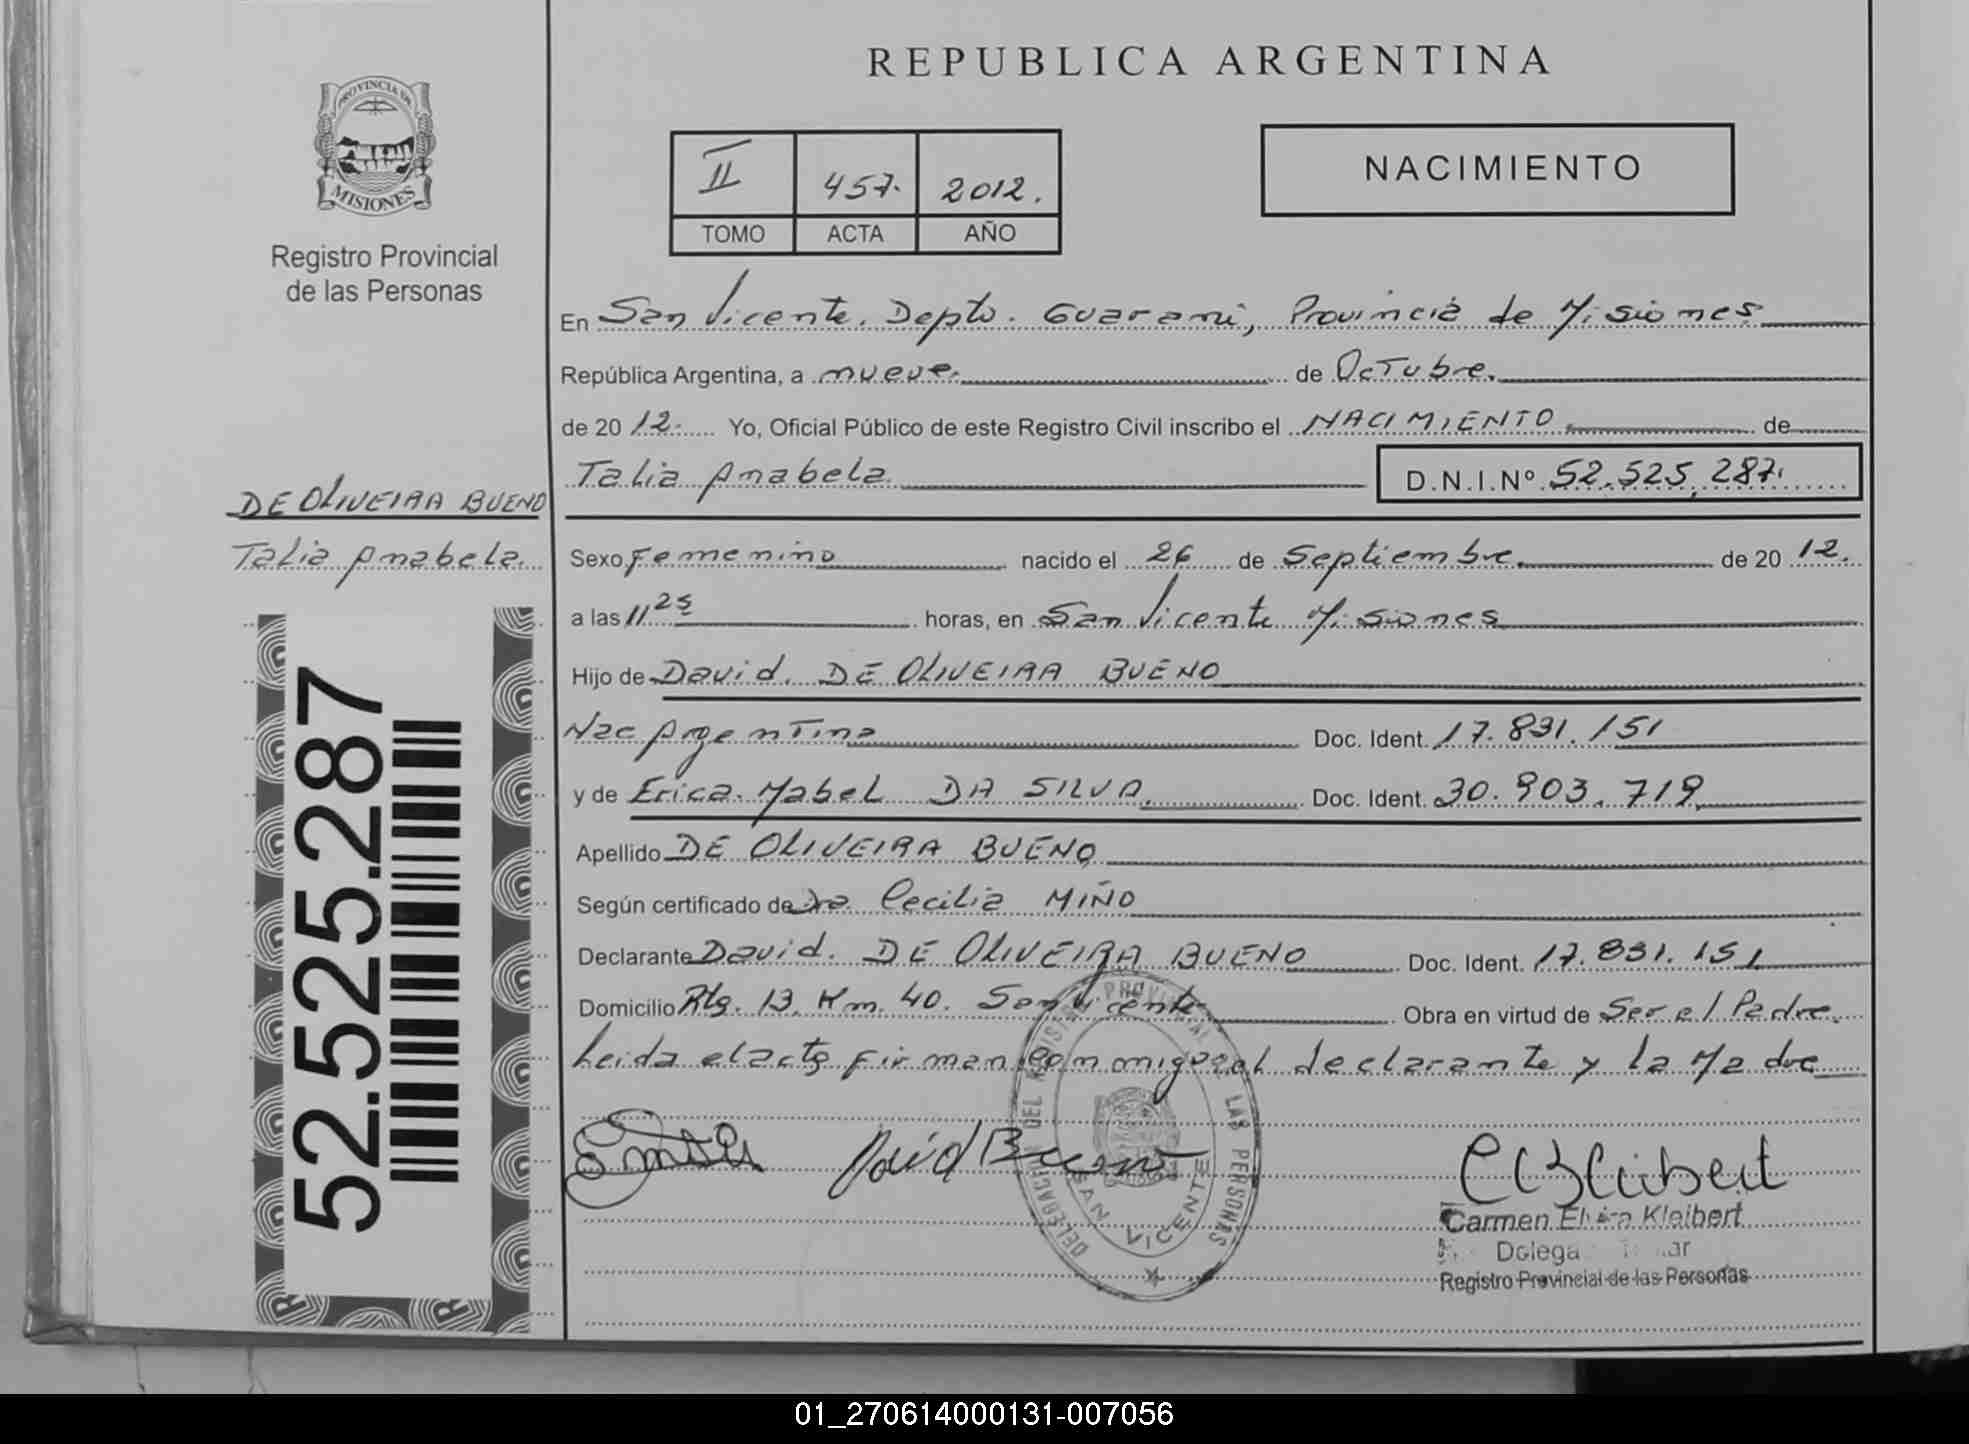 REPUBLICA ARGENTINA
PROVINCIA DE
MISIONES
Registro Provincial
de las Personas
II 457. 2012.
TOMO ACTA AÑO
NACIMIENTO
En San Vicente. Depto. Guarani, Provincia de Misiones
República Argentina, a nueve. de Octubre.
de 20 12. Yo, Oficial Público de este Registro Civil inscribo el NACIMIENTO de
Talia Anabela D.N.I.Nº 52.525.287.
DE OLIVEIRA BUENO
Talia Anabela.
Sexo Femenino nacido el 26 de Septiembre. de 20 12.
a las 11 25 horas, en San Vicente Misiones
Hijo de David. DE OLIVEIRA BUENO
Nac Argentina Doc. Ident. 17.831.151
y de Erica Mabel DA SILVA. Doc. Ident. 30.903.719
Apellido DE OLIVEIRA BUENO
Según certificado de Dra Cecilia MIÑO
Declarante David. DE OLIVEIRA BUENO Doc. Ident. 17.831.151
Domicilio Rta. 13 Km. 40. San Vicente Obra en virtud de Ser el Padre.
Leida el acta firman conmigo el declarante y la Madre
52.525.287
David Bueno
DELEGACION DEL REGISTRO PROVINCIAL DE LAS PERSONAS
SAN VICENTE
Carmen Elvira Kleibert
Registro Provincial de las Personas
01_270614000131-007056